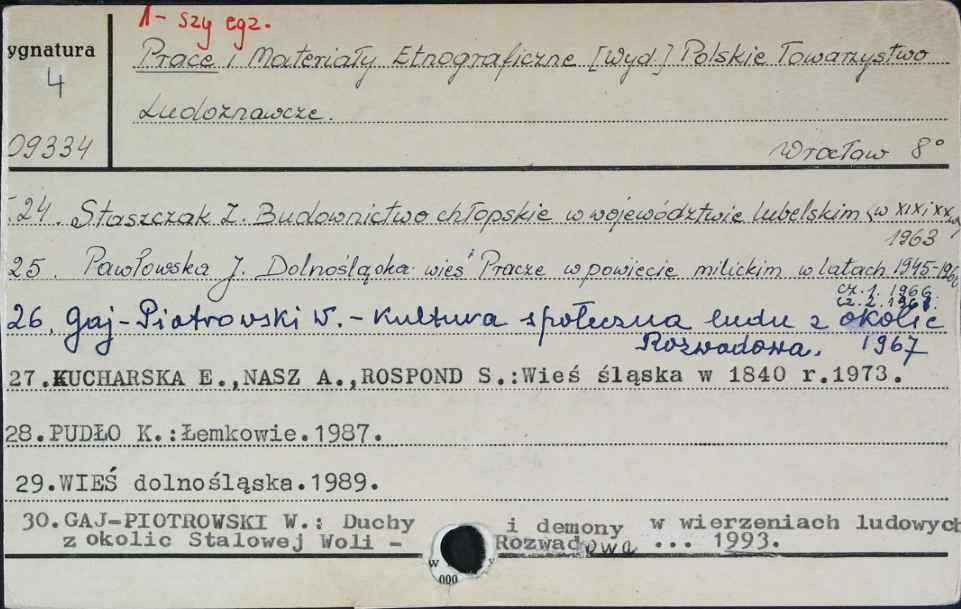 1-szy egz.
ygnatura
4
09334
Prace i Materiały Etnograficzne [Wyd.] Polskie Towarzystwo
Ludoznawcze.
Wrocław 8°
24. Staszczak Z. Budownictwo chłopskie w województwie lubelskim (w XIX i XX w)
1963
25. Pawłowska J. Dolnośląska wieś Pracze w powiecie milickim w latach 1945-
cz. 1. 1966.
cz. 2. 1968.
26. Gaj-Piotrowski W. - Kultura społeczna ludu z okolic
Rozwadowa. 1967
27.KUCHARSKA E.,NASZ A.,ROSPOND S.:Wieś śląska w 1840 r.1973.
28.PUDŁO K.:Łemkowie.1987.
29.WIEŚ dolnośląska.1989.
30.GAJ-PIOTROWSKI W.: Duchy i demony w wierzeniach ludowych
z okolic Stalowej Woli - Rozwadowa ... 1993.
W
000